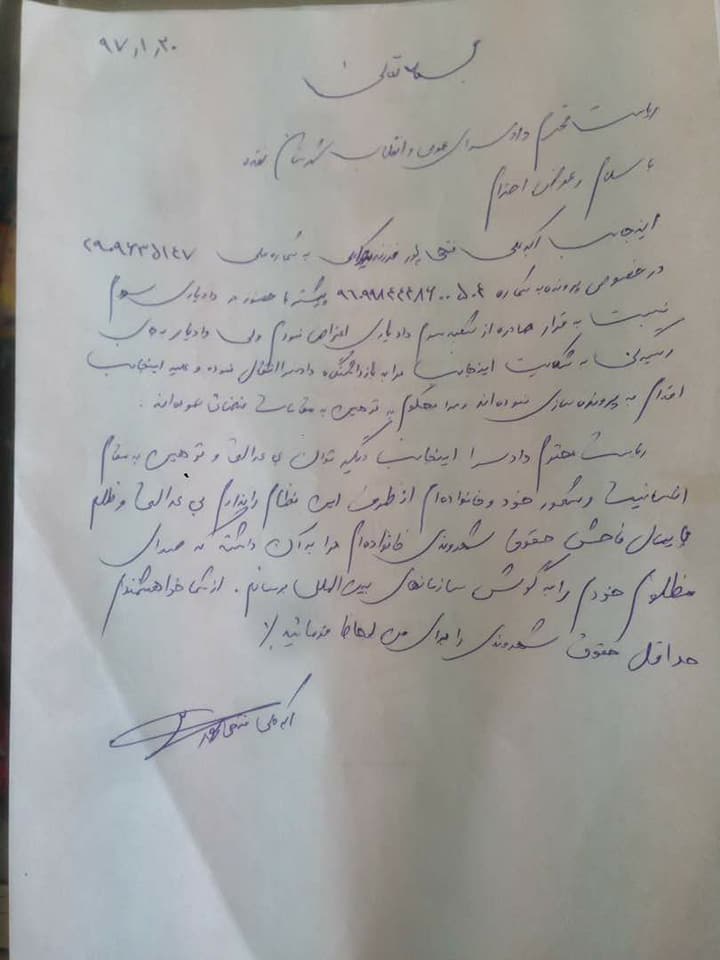 ۹۷٫۱٫۲۰
بسمه تعالی
ریاست محترم دادسرای عمومی و انقلاب شهرستان نقده
با سلام و عرض احترام
اینجانب اکبر علی فتحی پور فرزند به شماره ملی
در خصوص پرونده به شماره پیگشته با حضور در دادیاری سوم
نسبت به قرار صادره از شعبه سوم دادیاری اعتراض نمودم ولی دادیار به جای
رسیدگی به شکایت اینجانب مرا به بازداشتگاه دادسرا انتقال نموده و علیه اینجانب
اقدام به پرونده سازی نموده‌اند و مرا محکوم به توهین به مقامات قضائی نموده‌اند.
ریاست محترم دادسرا اینجانب دیگر توان بی عدالتی و توهین به مقام
انسانیت و شعور خود و خانواده‌ام از طرف این نظام را ندارم بی عدالتی و ظلم
پایمال فاحش حقوق شهروندی خانواده‌ام مرا به آن داشته که صدای
مظلوم خودم را به گوش سازمانهای بین الملل برسانم. از شما خواهشمندم
حداقل حقوق شهروندی را برای من لحاظ فرمائید./
اکبر علی فتحی پور